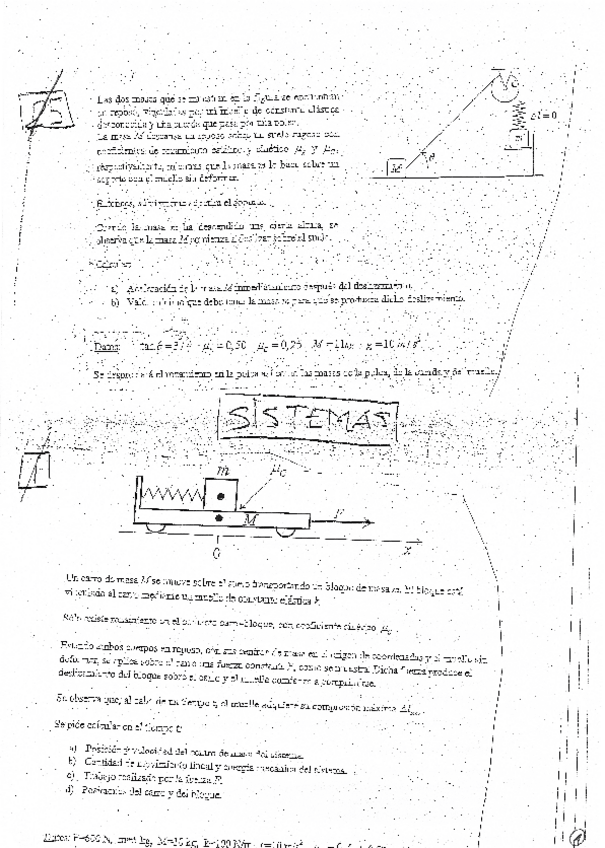 25
Las dos masas que se muestran en la figura se encuentran
en reposo, vinculadas por un muelle de constante elástica
desconocida y una cuerda que pasa por una polea.
La masa M descansa en reposo sobre un suelo rugoso con
coeficientes de rozamiento estático y cinético μe y μc,
respectivamente, mientras que la masa m lo hace sobre un
soporte con el muelle sin deformar.
Entonces, se retira el soporte.
Cuando la masa m ha descendido una cierta altura, se
observa que la masa M comienza a deslizar sobre el suelo.
Calcular:
a) Aceleración de la masa M inmediatamente después del deslizamiento.
b) Valor mínimo que debe tener la masa m para que se produzca dicho deslizamiento.
M
θ
Δl=0
m
Datos: tan θ=3/4 μe=0,50 μc=0,25 M=11kg g=10 m/s²
Se despreciará el rozamiento en la polea así como las masas de la polea, de la cuerda y del muelle.
SISTEMAS
1
m
μc
M
F
0
x
Un carro de masa M se mueve sobre el suelo transportando un bloque de masa m. El bloque está
vinculado al carro mediante un muelle de constante elástica k.
Sólo existe rozamiento en el contacto carro-bloque, con coeficiente cinético μc.
Estando ambos cuerpos en reposo, con sus centros de masa en el origen de coordenadas y el muelle sin
deformar, se aplica sobre el carro una fuerza constante F, como se muestra. Dicha fuerza produce el
deslizamiento del bloque sobre el carro y el muelle comienza a comprimirse.
Se observa que, al cabo de un tiempo t, el muelle adquiere su compresión máxima
Se pide calcular en el tiempo t:
a) Posición y velocidad del centro de masa del sistema.
b) Cantidad de movimiento lineal y energía mecánica del sistema.
c) Trabajo realizado por la fuerza F.
d) Posiciones del carro y del bloque.
Datos: F=600 N,